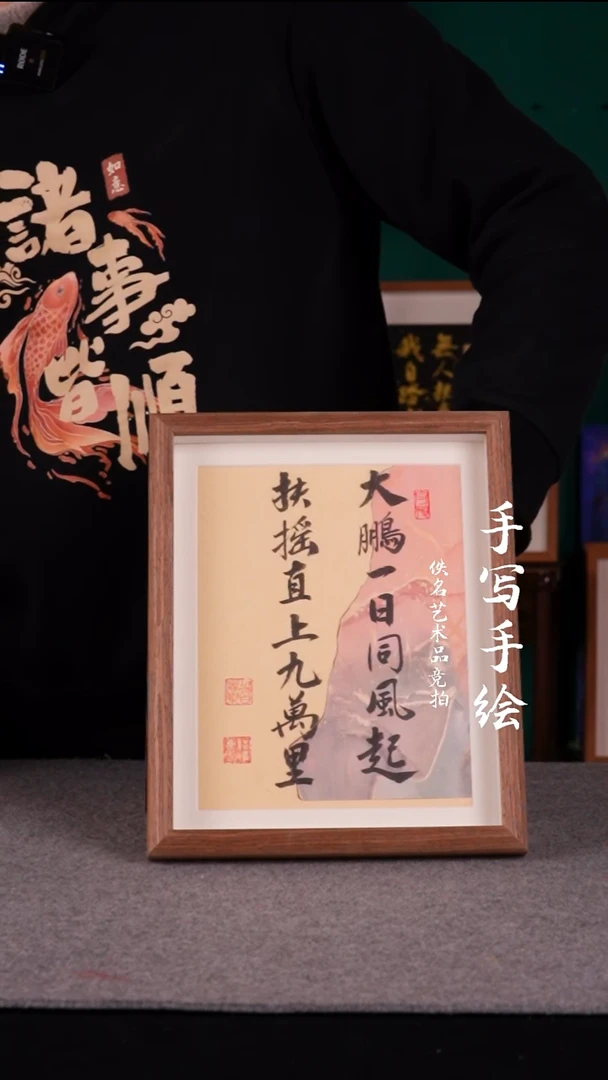 大鵬一日同風起
扶摇直上九萬里
手写手绘
佚名艺术品竞拍
諸事皆順
如意
RODE
無人
我自